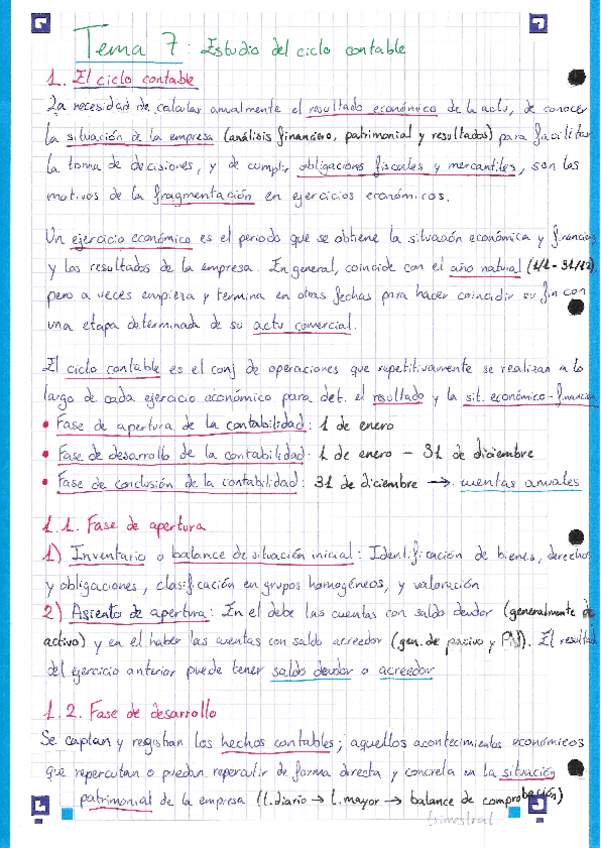 Tema 7: Estudio del ciclo contable
1. El ciclo contable
La necesidad de calcular anualmente el resultado económico de la actv, de conocer
la situación de la empresa (análisis financiero, patrimonial y resultados) para facilitar
la toma de decisiones, y de cumplir obligaciones fiscales y mercantiles, son los
motivos de la fragmentación en ejercicios económicos.
Un ejercicio económico es el periodo que se obtiene la situación económica y financiera
y los resultados de la empresa. En general, coincide con el año natural (1/1-31/12),
pero a veces empieza y termina en otras fechas para hacer coincidir su fin con
una etapa determinada de su actv comercial.
El ciclo contable es el conj de operaciones que repetitivamente se realizan a lo
largo de cada ejercicio económico para det. el resultado y la sit. económico-financiera
• Fase de apertura de la contabilidad: 1 de enero
• Fase de desarrollo de la contabilidad: 1 de enero - 31 de diciembre
• Fase de conclusión de la contabilidad: 31 de diciembre → cuentas anuales
1.1. Fase de apertura
1) Inventario o balance de situación inicial: Identificación de bienes, derechos
y obligaciones, clasificación en grupos homogéneos, y valoración.
2) Asiento de apertura: En el debe las cuentas con saldo deudor (generalmente de
activo) y en el haber las cuentas con saldo acreedor (gen. de pasivo y PN). El resultado
del ejercicio anterior puede tener saldo deudor o acreedor
1.2. Fase de desarrollo
Se captan y registran los hechos contables; aquellos acontecimientos económicos
que repercutan o puedan repercutir de forma directa y concreta en la situación
patrimonial de la empresa (l.diario → l.mayor → balance de comprobación)
trimestral